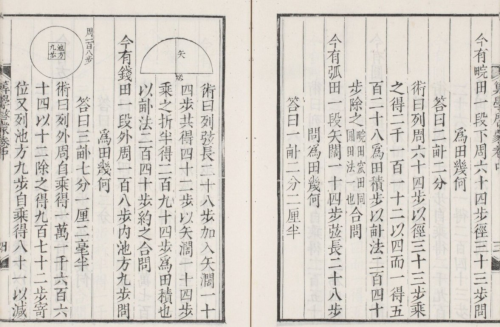 今有畹田一段下周六十四步徑三十三步問
為田幾何
答曰二畝二分
術曰列周六十四步以徑三十三步乘
之得二千一百一十二以四而一得五
百二十八為田積步以畝法二百四十
步除之畹田宛田同圓田法一也合問
今有弧田一段矢闊一十四步弦長二十八步
問為田幾何
答曰一畝二分二厘半
矢
弦
術曰列弦長二十八步加入矢濶一十
四步共得四十二步以矢濶一十四步
乘之折半得二百九十四步為田積也
以畝法二百四十步約之合問
今有錢田一段外周一百八步內池方九步問
為田幾何
答曰三畝七分一厘二毫半
周一百八步
池方
九步
術曰列外周自乘得一萬一千六百六
十四以十二除之得九百七十二步寄
位又列池方九步自乘得八十一以減